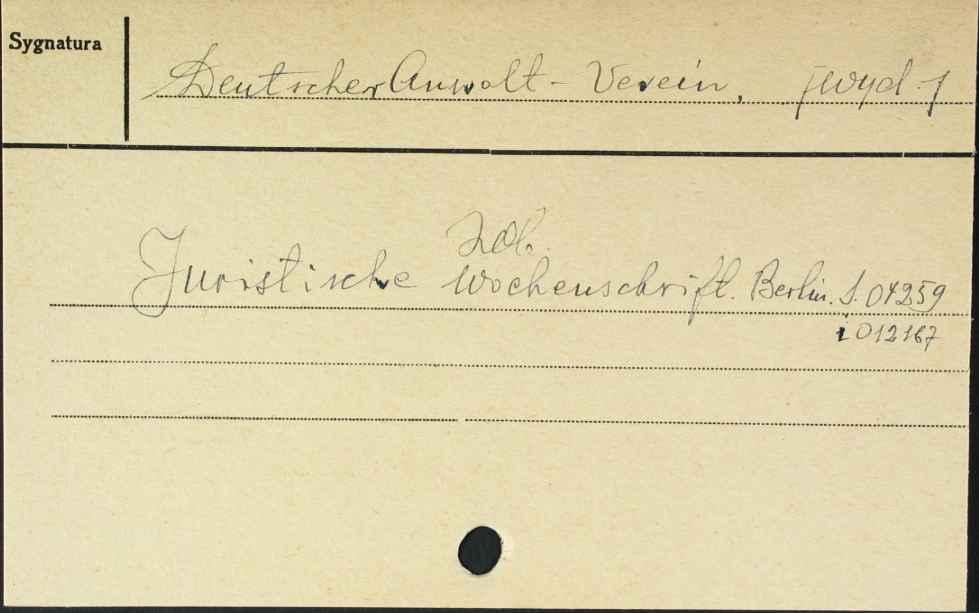 Sygnatura
Deutscher Anwalt - Verein, [wyd.]
Zob.
Juristische Wochenschrift. Berlin. S. 04259
i 012167